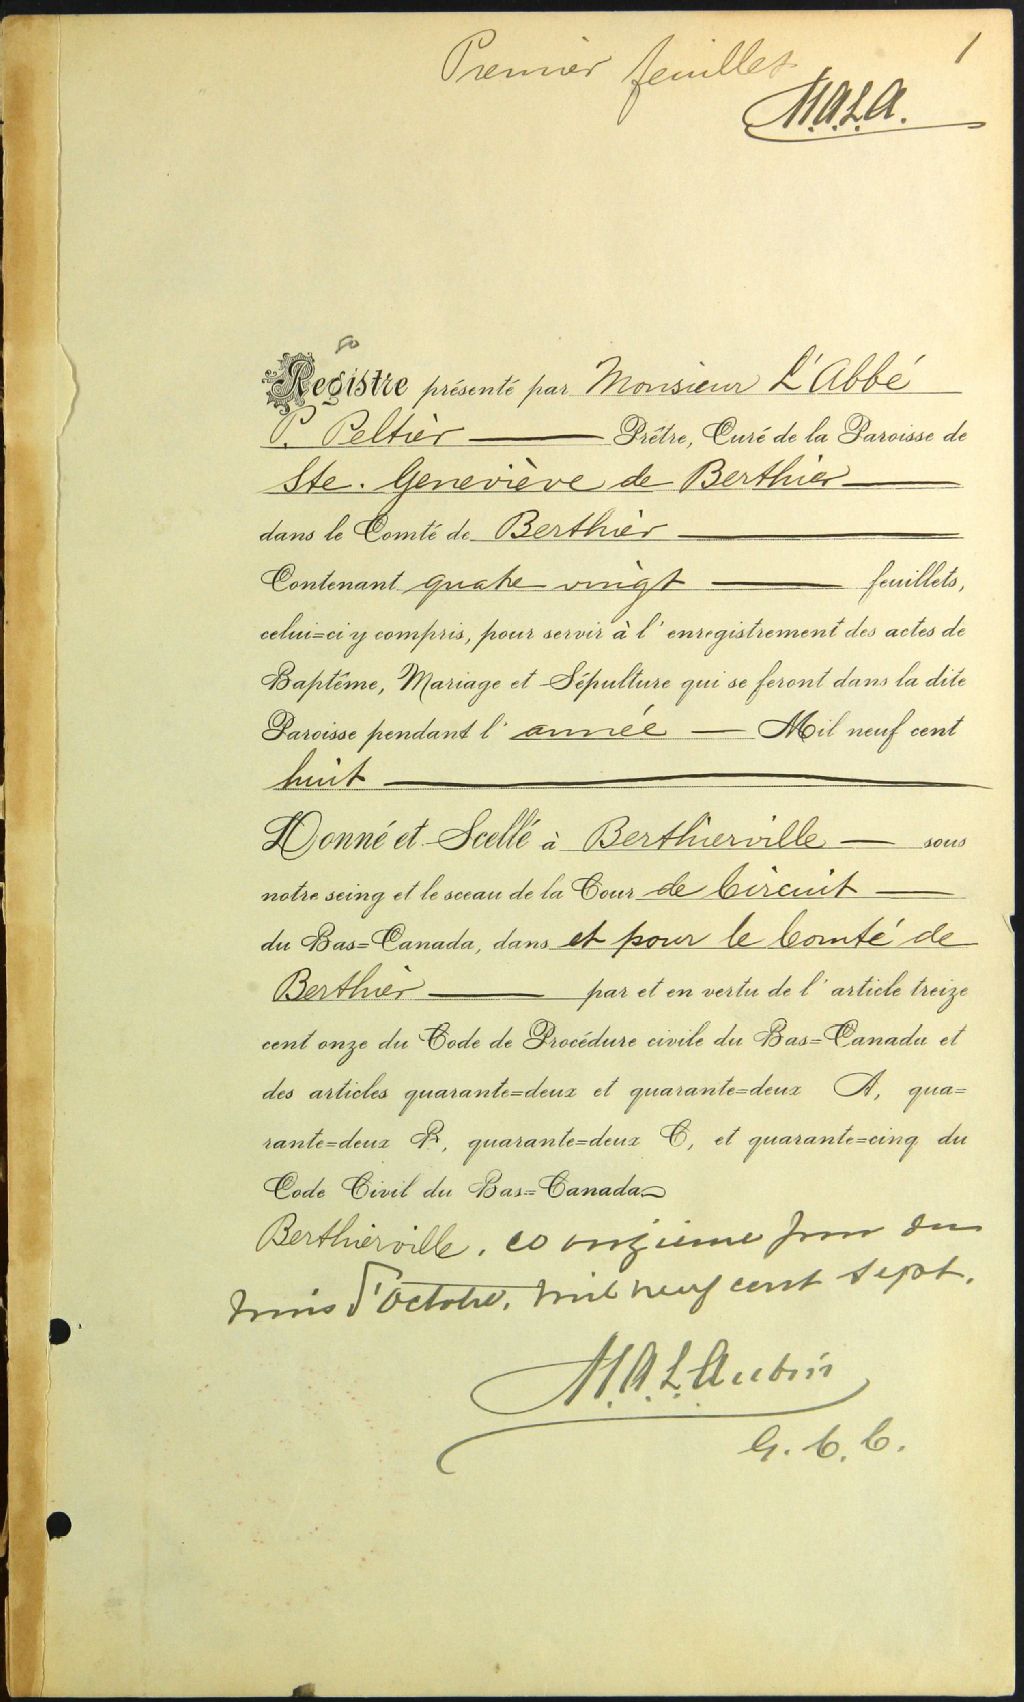 Premier feuillet
1
M.A.L.A.
80
Registre présenté par Monsieur L'Abbé
P. Peltier Prêtre, Curé de la Paroisse de
Ste. Geneviève de Berthier
dans le Comté de Berthier
Contenant quatre vingt feuillets,
celui=ci y compris, pour servir à l'enregistrement des actes de
Baptême, Mariage et Sépulture qui se feront dans la dite
Paroisse pendant l'année — Mil neuf cent
huit
Donné et Scellé à Berthierville — sous
notre seing et le sceau de la Cour de Circuit —
du Bas=Canada, dans et pour le Comté de
Berthier — par et en vertu de l'article treize
cent onze du Code de Procédure civile du Bas=Canada et
des articles quarante=deux et quarante=deux A, qua=
rante=deux B, quarante=deux C, et quarante=cinq du
Code Civil du Bas=Canada
Berthierville, ce onzieme jour du
mois d'octobre, mil neuf cent sept.
M.A.L. Aubin
G.C.C.